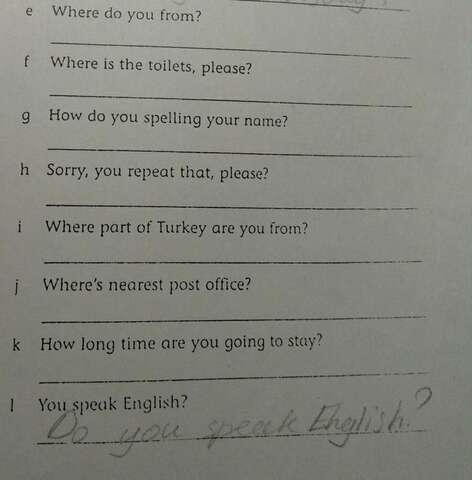 e Where do you from?
f Where is the toilets, please?
g How do you spelling your name?
h Sorry, you repeat that, please?
i Where part of Turkey are you from?
j Where's nearest post office?
k How long time are you going to stay?
l You speak English?
Do you speak English?